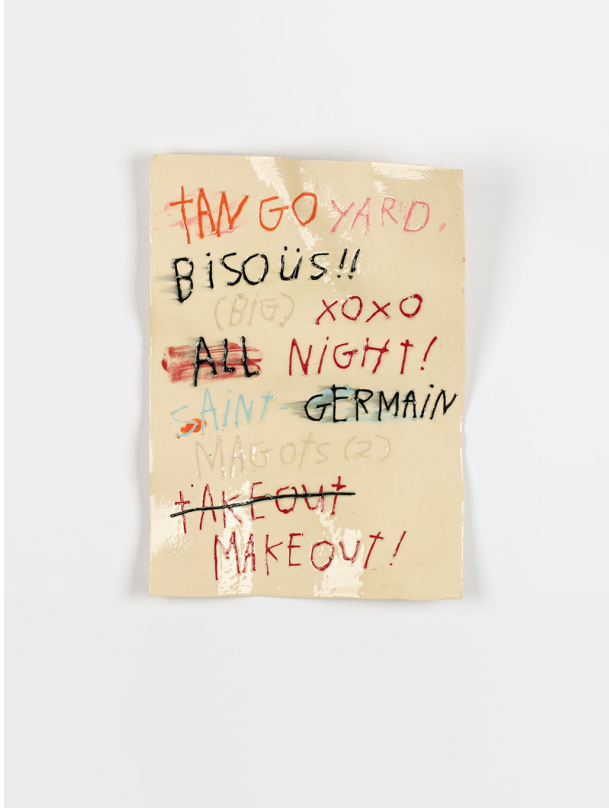 tANGO YARD.
BiSOüS!!
(BIG) XOXO
ALL NiGHt!
SAiNt GERMAiN
MAGOtS (2)
tAKEOUt
MAKEOUt!